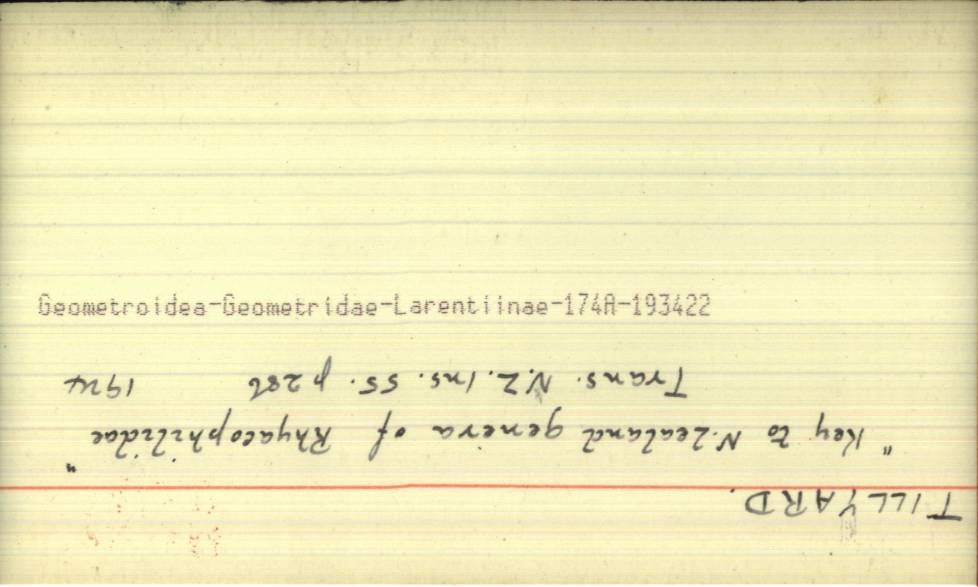 Geometroidea-Geometridae-Larentiinae-174A-193422
TILLYARD.
"Key to N.Zealand genera of Rhyacophilidae"
Trans. N.Z. Ins. 55. p 286 1924